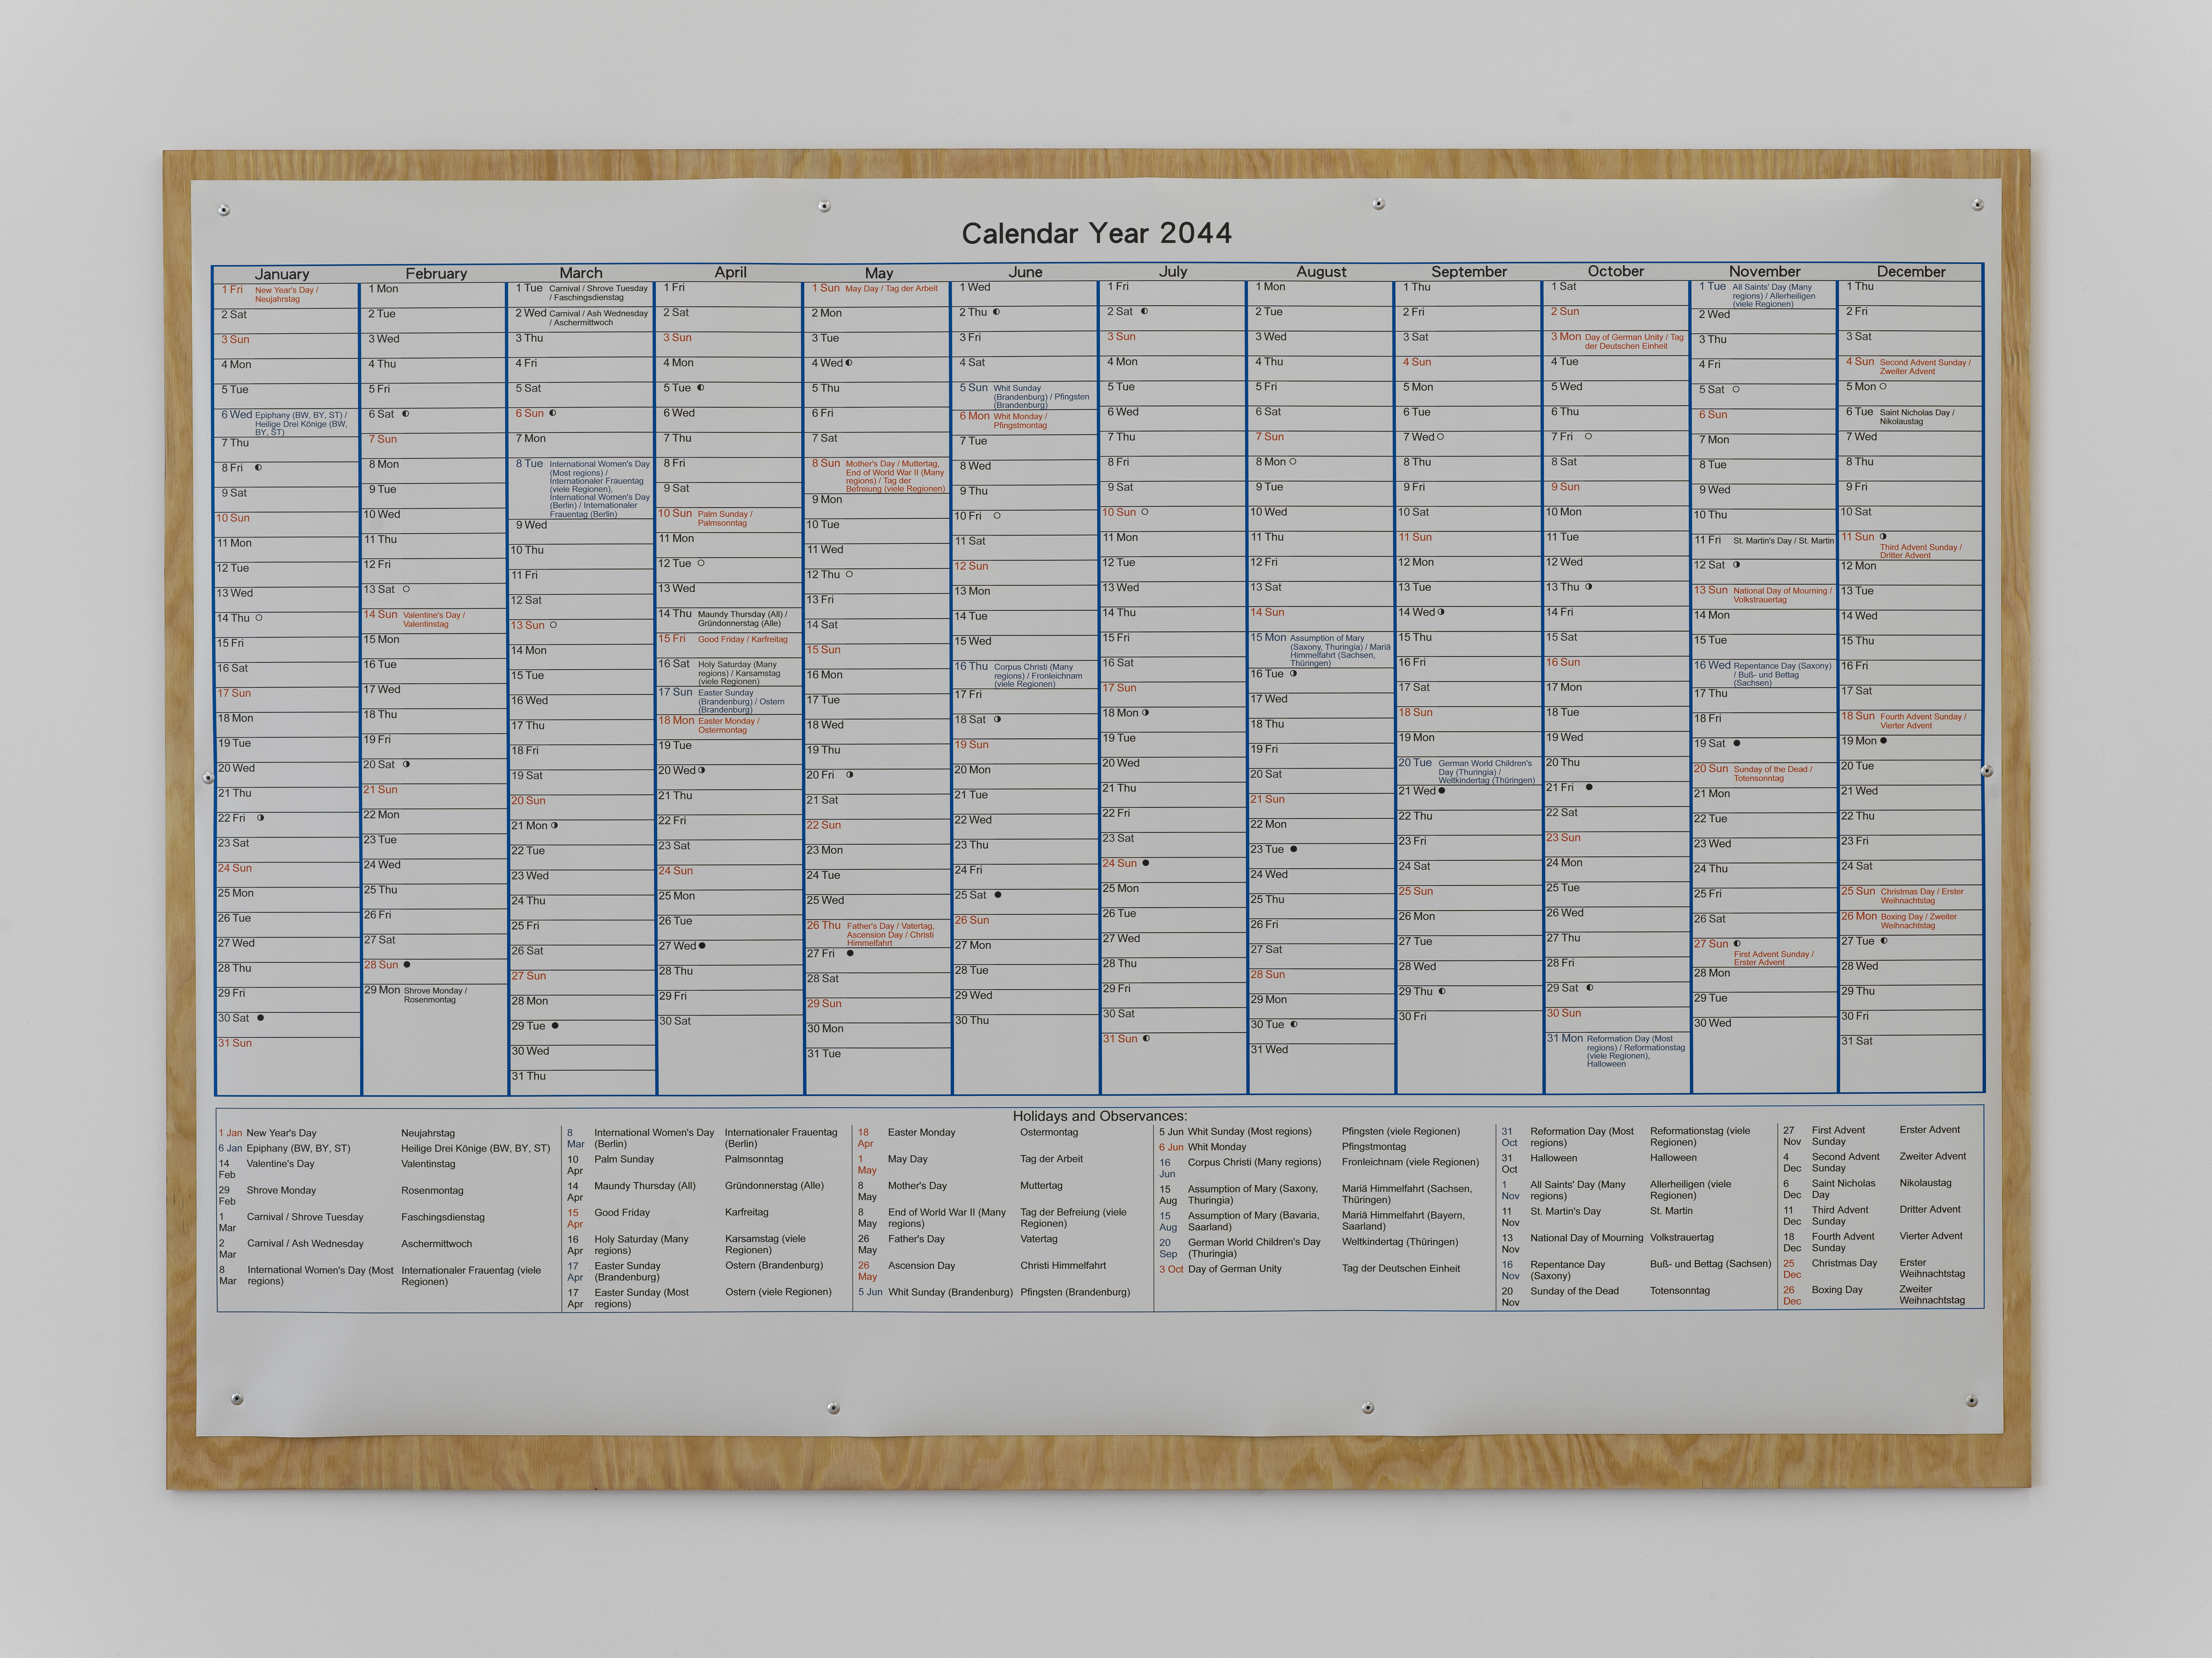 Calendar Year 2044
January
1 Fri New Year's Day /
Neujahrstag
2 Sat
3 Sun
4 Mon
5 Tue
6 Wed Epiphany (BW, BY, ST) /
Heilige Drei Könige (BW,
BY, ST)
7 Thu
8 Fri
9 Sat
10 Sun
11 Mon
12 Tue
13 Wed
14 Thu
15 Fri
16 Sat
17 Sun
18 Mon
19 Tue
20 Wed
21 Thu
22 Fri
23 Sat
24 Sun
25 Mon
26 Tue
27 Wed
28 Thu
29 Fri
30 Sat
31 Sun
February
1 Mon
2 Tue
3 Wed
4 Thu
5 Fri
6 Sat
7 Sun
8 Mon
9 Tue
10 Wed
11 Thu
12 Fri
13 Sat
14 Sun Valentine's Day /
Valentinstag
15 Mon
16 Tue
17 Wed
18 Thu
19 Fri
20 Sat
21 Sun
22 Mon
23 Tue
24 Wed
25 Thu
26 Fri
27 Sat
28 Sun
29 Mon Shrove Monday /
Rosenmontag
March
1 Tue Carnival / Shrove Tuesday
/ Faschingsdienstag
2 Wed Carnival / Ash Wednesday
/ Aschermittwoch
3 Thu
4 Fri
5 Sat
6 Sun
7 Mon
8 Tue International Women's Day
(Most regions) /
Internationaler Frauentag
(viele Regionen),
International Women's Day
(Berlin) / Internationaler
Frauentag (Berlin)
9 Wed
10 Thu
11 Fri
12 Sat
13 Sun
14 Mon
15 Tue
16 Wed
17 Thu
18 Fri
19 Sat
20 Sun
21 Mon
22 Tue
23 Wed
24 Thu
25 Fri
26 Sat
27 Sun
28 Mon
29 Tue
30 Wed
31 Thu
April
1 Fri
2 Sat
3 Sun
4 Mon
5 Tue
6 Wed
7 Thu
8 Fri
9 Sat
10 Sun Palm Sunday /
Palmsonntag
11 Mon
12 Tue
13 Wed
14 Thu Maundy Thursday (All) /
Gründonnerstag (Alle)
15 Fri Good Friday / Karfreitag
16 Sat Holy Saturday (Many
regions) / Karsamstag
(viele Regionen)
17 Sun Easter Sunday
(Brandenburg) / Ostern
(Brandenburg)
18 Mon Easter Monday /
Ostermontag
19 Tue
20 Wed
21 Thu
22 Fri
23 Sat
24 Sun
25 Mon
26 Tue
27 Wed
28 Thu
29 Fri
30 Sat
May
1 Sun May Day / Tag der Arbeit
2 Mon
3 Tue
4 Wed
5 Thu
6 Fri
7 Sat
8 Sun Mother's Day / Muttertag,
End of World War II (Many
regions) / Tag der
Befreiung (viele Regionen)
9 Mon
10 Tue
11 Wed
12 Thu
13 Fri
14 Sat
15 Sun
16 Mon
17 Tue
18 Wed
19 Thu
20 Fri
21 Sat
22 Sun
23 Mon
24 Tue
25 Wed
26 Thu Father's Day / Vatertag,
Ascension Day / Christi
Himmelfahrt
27 Fri
28 Sat
29 Sun
30 Mon
31 Tue
June
1 Wed
2 Thu
3 Fri
4 Sat
5 Sun Whit Sunday
(Brandenburg) / Pfingsten
(Brandenburg)
6 Mon Whit Monday /
Pfingstmontag
7 Tue
8 Wed
9 Thu
10 Fri
11 Sat
12 Sun
13 Mon
14 Tue
15 Wed
16 Thu Corpus Christi (Many
regions) / Fronleichnam
(viele Regionen)
17 Fri
18 Sat
19 Sun
20 Mon
21 Tue
22 Wed
23 Thu
24 Fri
25 Sat
26 Sun
27 Mon
28 Tue
29 Wed
30 Thu
July
1 Fri
2 Sat
3 Sun
4 Mon
5 Tue
6 Wed
7 Thu
8 Fri
9 Sat
10 Sun
11 Mon
12 Tue
13 Wed
14 Thu
15 Fri
16 Sat
17 Sun
18 Mon
19 Tue
20 Wed
21 Thu
22 Fri
23 Sat
24 Sun
25 Mon
26 Tue
27 Wed
28 Thu
29 Fri
30 Sat
31 Sun
August
1 Mon
2 Tue
3 Wed
4 Thu
5 Fri
6 Sat
7 Sun
8 Mon
9 Tue
10 Wed
11 Thu
12 Fri
13 Sat
14 Sun
15 Mon Assumption of Mary
(Saxony, Thuringia) / Mariä
Himmelfahrt (Sachsen,
Thüringen)
16 Tue
17 Wed
18 Thu
19 Fri
20 Sat
21 Sun
22 Mon
23 Tue
24 Wed
25 Thu
26 Fri
27 Sat
28 Sun
29 Mon
30 Tue
31 Wed
September
1 Thu
2 Fri
3 Sat
4 Sun
5 Mon
6 Tue
7 Wed
8 Thu
9 Fri
10 Sat
11 Sun
12 Mon
13 Tue
14 Wed
15 Thu
16 Fri
17 Sat
18 Sun
19 Mon
20 Tue German World Children's
Day (Thuringia) /
Weltkindertag (Thüringen)
21 Wed
22 Thu
23 Fri
24 Sat
25 Sun
26 Mon
27 Tue
28 Wed
29 Thu
30 Fri
October
1 Sat
2 Sun
3 Mon Day of German Unity / Tag
der Deutschen Einheit
4 Tue
5 Wed
6 Thu
7 Fri
8 Sat
9 Sun
10 Mon
11 Tue
12 Wed
13 Thu
14 Fri
15 Sat
16 Sun
17 Mon
18 Tue
19 Wed
20 Thu
21 Fri
22 Sat
23 Sun
24 Mon
25 Tue
26 Wed
27 Thu
28 Fri
29 Sat
30 Sun
31 Mon Reformation Day (Most
regions) / Reformationstag
(viele Regionen),
Halloween
November
1 Tue All Saints' Day (Many
regions) / Allerheiligen
(viele Regionen)
2 Wed
3 Thu
4 Fri
5 Sat
6 Sun
7 Mon
8 Tue
9 Wed
10 Thu
11 Fri St. Martin's Day / St. Martin
12 Sat
13 Sun National Day of Mourning /
Volkstrauertag
14 Mon
15 Tue
16 Wed Repentance Day (Saxony)
/ Buß- und Bettag
(Sachsen)
17 Thu
18 Fri
19 Sat
20 Sun Sunday of the Dead /
Totensonntag
21 Mon
22 Tue
23 Wed
24 Thu
25 Fri
26 Sat
27 Sun
First Advent Sunday /
Erster Advent
28 Mon
29 Tue
30 Wed
December
1 Thu
2 Fri
3 Sat
4 Sun Second Advent Sunday /
Zweiter Advent
5 Mon
6 Tue Saint Nicholas Day /
Nikolaustag
7 Wed
8 Thu
9 Fri
10 Sat
11 Sun
Third Advent Sunday /
Dritter Advent
12 Mon
13 Tue
14 Wed
15 Thu
16 Fri
17 Sat
18 Sun Fourth Advent Sunday /
Vierter Advent
19 Mon
20 Tue
21 Wed
22 Thu
23 Fri
24 Sat
25 Sun Christmas Day / Erster
Weihnachtstag
26 Mon Boxing Day / Zweiter
Weihnachtstag
27 Tue
28 Wed
29 Thu
30 Fri
31 Sat
Holidays and Observances:
1 Jan New Year's Day Neujahrstag
6 Jan Epiphany (BW, BY, ST) Heilige Drei Könige (BW, BY, ST)
14 Valentine's Day Valentinstag
Feb
29 Shrove Monday Rosenmontag
Feb
1 Carnival / Shrove Tuesday Faschingsdienstag
Mar
2 Carnival / Ash Wednesday Aschermittwoch
Mar
8 International Women's Day (Most Internationaler Frauentag (viele
Mar regions) Regionen)
8 International Women's Day Internationaler Frauentag
Mar (Berlin) (Berlin)
10 Palm Sunday Palmsonntag
Apr
14 Maundy Thursday (All) Gründonnerstag (Alle)
Apr
15 Good Friday Karfreitag
Apr
16 Holy Saturday (Many Karsamstag (viele
Apr regions) Regionen)
17 Easter Sunday Ostern (Brandenburg)
Apr (Brandenburg)
17 Easter Sunday (Most Ostern (viele Regionen)
Apr regions)
18 Easter Monday Ostermontag
Apr
1 May Day Tag der Arbeit
May
8 Mother's Day Muttertag
May
8 End of World War II (Many Tag der Befreiung (viele
May regions) Regionen)
26 Father's Day Vatertag
May
26 Ascension Day Christi Himmelfahrt
May
5 Jun Whit Sunday (Brandenburg) Pfingsten (Brandenburg)
5 Jun Whit Sunday (Most regions) Pfingsten (viele Regionen)
6 Jun Whit Monday Pfingstmontag
16 Corpus Christi (Many regions) Fronleichnam (viele Regionen)
Jun
15 Assumption of Mary (Saxony, Mariä Himmelfahrt (Sachsen,
Aug Thuringia) Thüringen)
15 Assumption of Mary (Bavaria, Mariä Himmelfahrt (Bayern,
Aug Saarland) Saarland)
20 German World Children's Day Weltkindertag (Thüringen)
Sep (Thuringia)
3 Oct Day of German Unity Tag der Deutschen Einheit
31 Reformation Day (Most Reformationstag (viele
Oct regions) Regionen)
31 Halloween Halloween
Oct
1 All Saints' Day (Many Allerheiligen (viele
Nov regions) Regionen)
11 St. Martin's Day St. Martin
Nov
13 National Day of Mourning Volkstrauertag
Nov
16 Repentance Day Buß- und Bettag (Sachsen)
Nov (Saxony)
20 Sunday of the Dead Totensonntag
Nov
27 First Advent Erster Advent
Nov Sunday
4 Second Advent Zweiter Advent
Dec Sunday
6 Saint Nicholas Nikolaustag
Dec Day
11 Third Advent Dritter Advent
Dec Sunday
18 Fourth Advent Vierter Advent
Dec Sunday
25 Christmas Day Erster
Dec Weihnachtstag
26 Boxing Day Zweiter
Dec Weihnachtstag